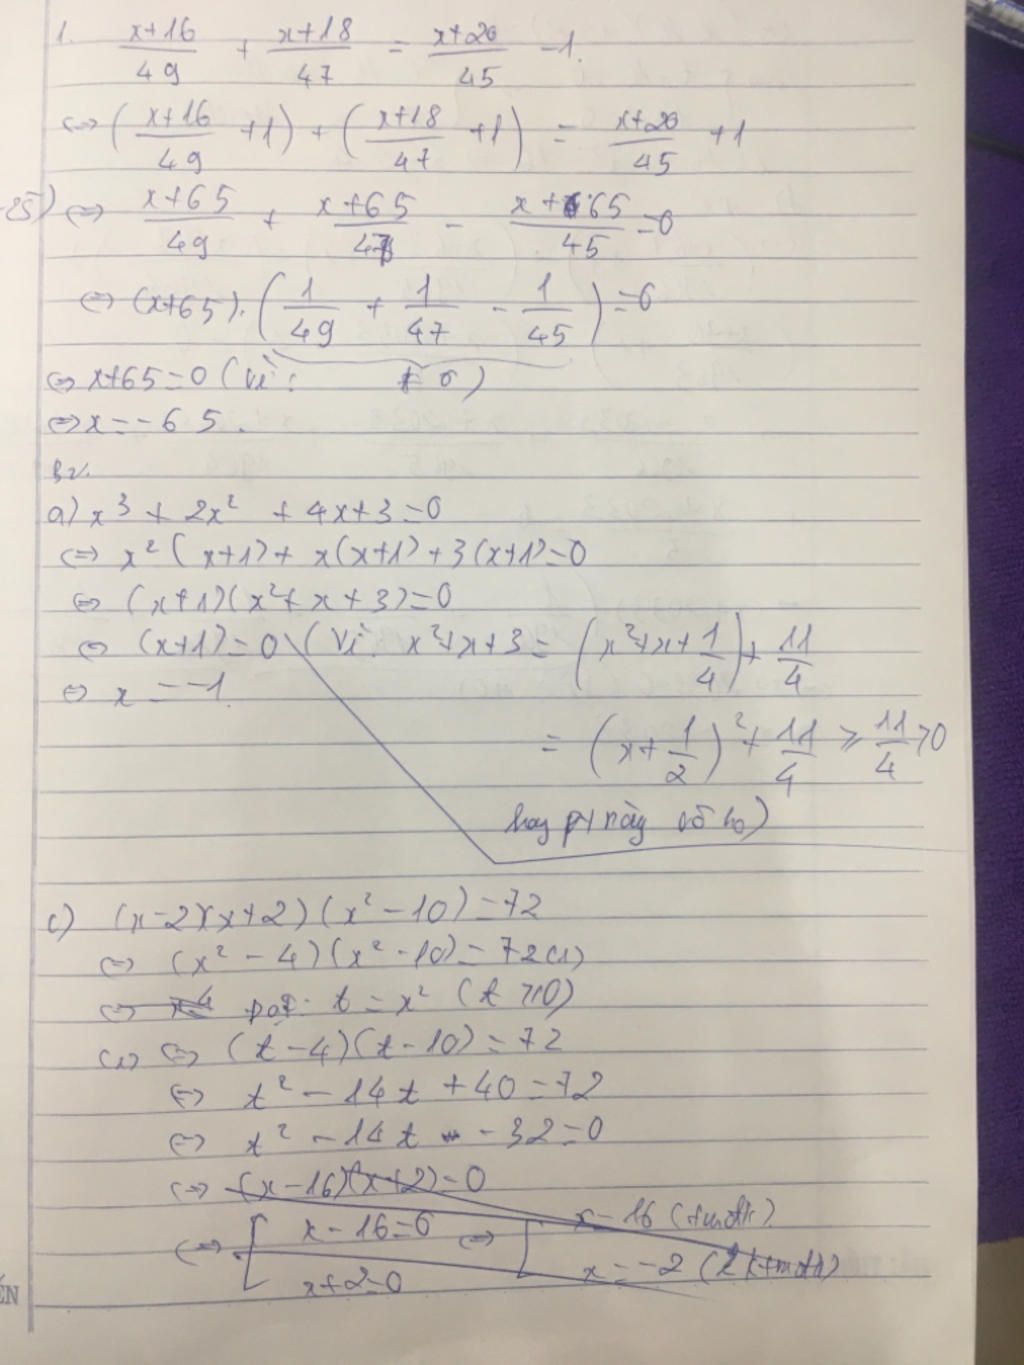 1. (x+16)/49 + (x+18)/47 = (x+20)/45 - 1.
⇔ ((x+16)/49 + 1) + ((x+18)/47 + 1) = (x+20)/45 + 1
-25) ⇔ (x+65)/49 + (x+65)/47 - (x+65)/45 = 0
⇔ (x+65).(1/49 + 1/47 - 1/45) = 0
⇔ x+65=0 (Vì: ≠ 0)
⇔ x = -65.
B2.
a) x³ + 2x² + 4x + 3 = 0
⇔ x²(x+1) + x(x+1) + 3(x+1) = 0
⇔ (x+1)(x²+x+3)=0
⇔ (x+1)=0 (Vì: x²+x+3 = (x²+x+1/4) + 11/4
⇔ x = -1.
= (x+1/2)² + 11/4 ≥ 11/4 >0
hay pt này vô no)
c) (x-2)(x+2)(x²-10)=72
⇔ (x²-4)(x²-10)=72(1)
⇔ x⁴ Đặt: t = x² (t ≥ 0)
(1) ⇔ (t-4)(t-10)=72
⇔ t² - 14t + 40 = 72
⇔ t² - 14t - 32 = 0
⇔ (x-16)(x+2)=0
⇔ [ x-16=0 ⇔ [ x=16 (tmđk)
x+2=0 x=-2 (ktmđk)
ẾN